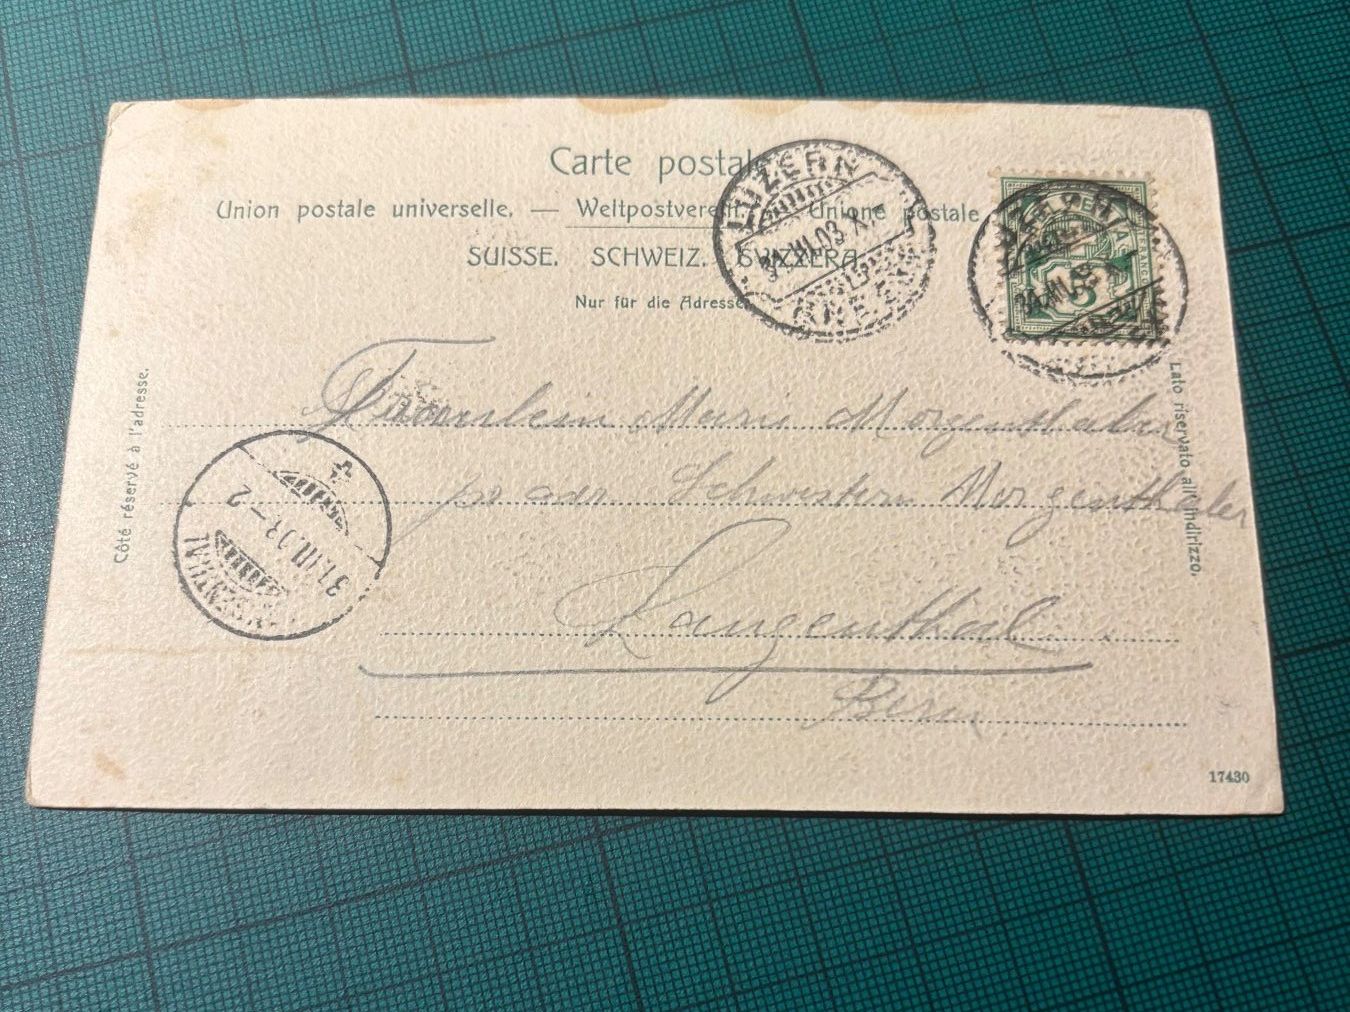 Carte postale
Union postale universelle. — Weltpostverein. — Unione postale
SUISSE. SCHWEIZ. SVIZZERA.
Nur für die Adresse
LUZERN
31.III.03. X
LUZERN
HELVETIA
5
Côté réservé à l'adresse.
Lato riservato all'indirizzo.
Fräulein Marie Morgenthaler
Schwestern Morgenthaler
LANGENTHAL
31.III.03.–2
Langenthal.
Bern
17430